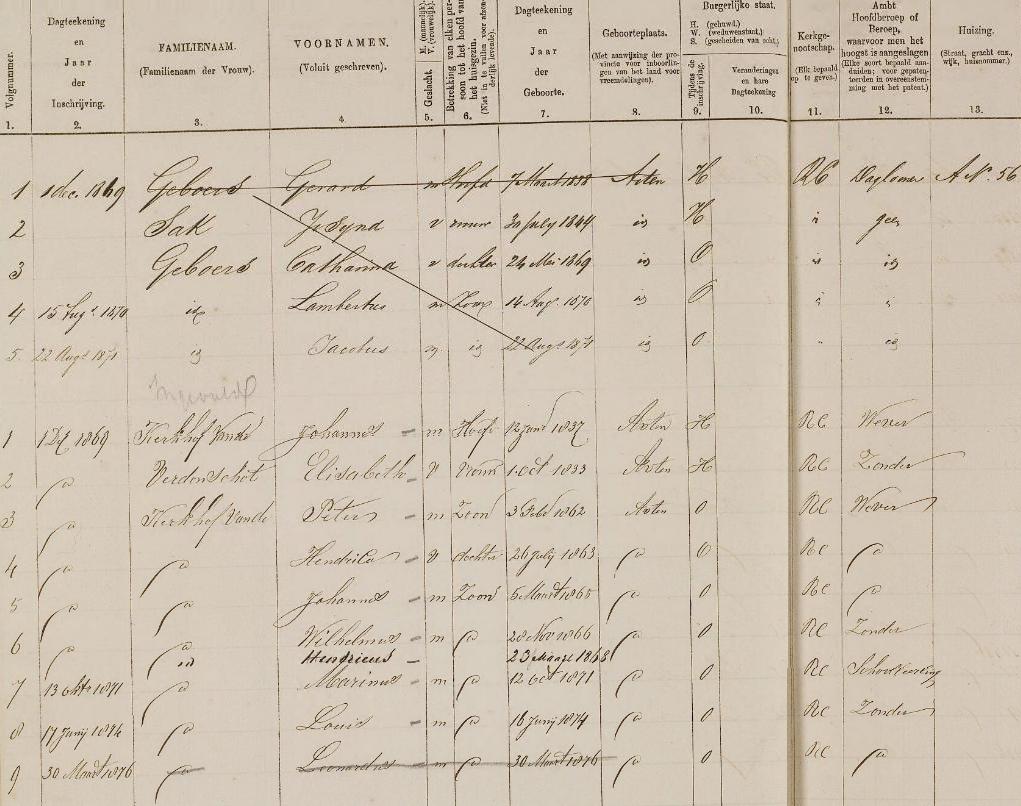 Volgnummer. 1.
Dagteekening en Jaar der Inschrijving. 2.
FAMILIENAAM. (Familienaam der Vrouw). 3.
VOORNAMEN. (Voluit geschreven). 4.
Geslacht. M. (mannelijk). V. (vrouwelijk). 5.
Betrekking van elken persoon tot het hoofd van het huisgezin. (Niet in te vullen voor afzonderlijk levende). 6.
Dagteekening en Jaar der Geboorte. 7.
Geboorteplaats. (Met aanwijzing der provincie voor inboorlingen van het land voor vreemdelingen). 8.
Burgerlijke staat. H. (gehuwd.) W. (weduwenstaat.) S. (gescheiden van echt.)
Tijdens de inschrijving. 9.
Veranderingen en hare Dagteekening 10.
Kerkgenootschap. (Elk bepaald op te geven.) 11.
Ambt Hoofdberoep of Beroep, waarvoor men het hoogst is aangeslagen (Elke soort bepaald aanduiden; voor gepatenteerden in overeenstemming met het patent.) 12.
Huizing. (Straat, gracht enz., wijk, huisnummer.) 13.
1 1 dec. 1869 Geboers Gerard m Hoofd 7 Maart 1838 Asten H RC Daglooner A No. 56
2 Sak v vrouw 30 July 1844 id H " geen
3 Geboers Catharina v dochter 24 Mei 1869 id O " id
4 15 Augs 1870 id Lambertus m Zoon 14 Aug. 1870 id O " "
5. 22 Augs 1871 id Jacobus m id 22 Augs 1871 id O " id
1 1 Dec 1869 Kerkhof Vande Johannes - m Hoofd 12 Janr 1837 Asten H RC Wever
2 do Verdonschot Elisabeth - V Vrouw 1 Oct 1833 Asten H RC Zonder
3 do Kerkhof Vande Peter - m Zoon 3 Febr 1862 Asten O RC Wever
4 do do Hendrica - V dochter 26 July 1863 do O RC do
5 do do Johannes - m Zoon 5 Maart 1865 do O RC do
6 do do Wilhelmus - m do 28 Nov 1866 do O RC Zonder
id Hendricus - 23 Maart 1868
7 13 Oktr 1871 do Marinus - m do 12 Oct 1871 do O RC Schoolleerling
8 17 Junij 1874 do Louis - m do 16 Junij 1874 do O RC Zonder
9 30 Maart 1876 do Leonardus m do 30 Maart 1876 do O RC do